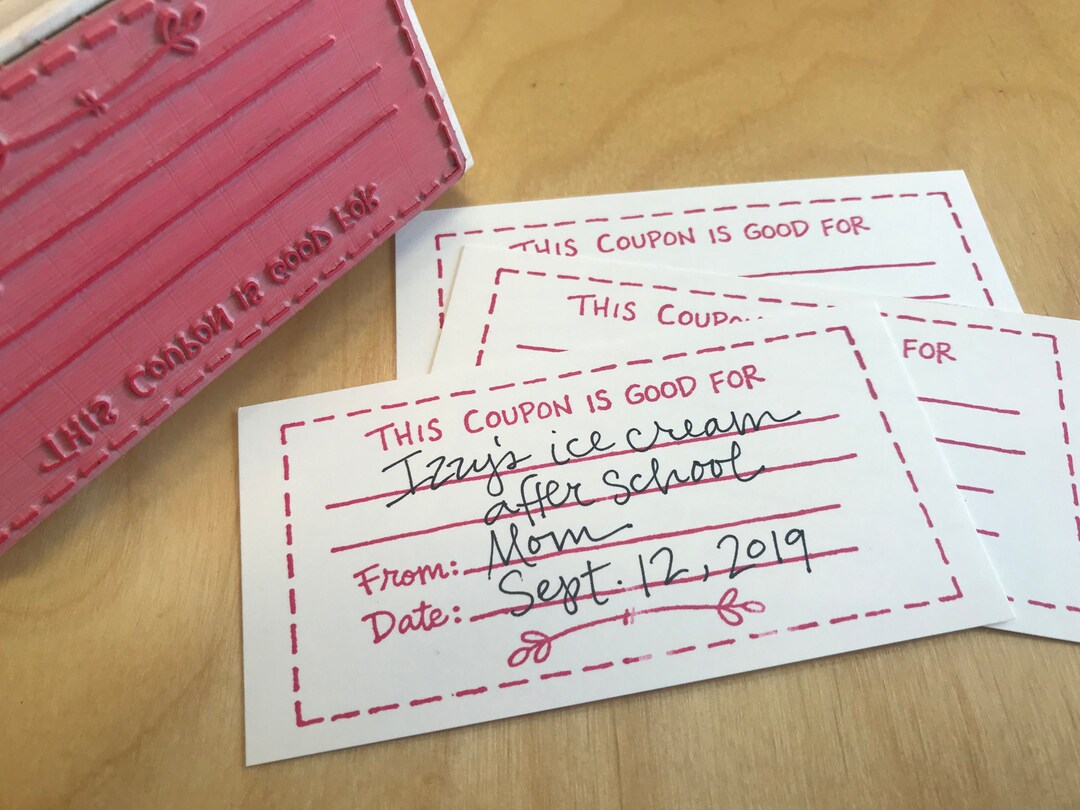 THIS COUPON IS GOOD FOR
THIS COUPON IS GOOD FOR
THIS COUPON
FOR
THIS COUPON IS GOOD FOR
Izzy's ice cream
after school
From: Mom
Date: Sept. 12, 2019